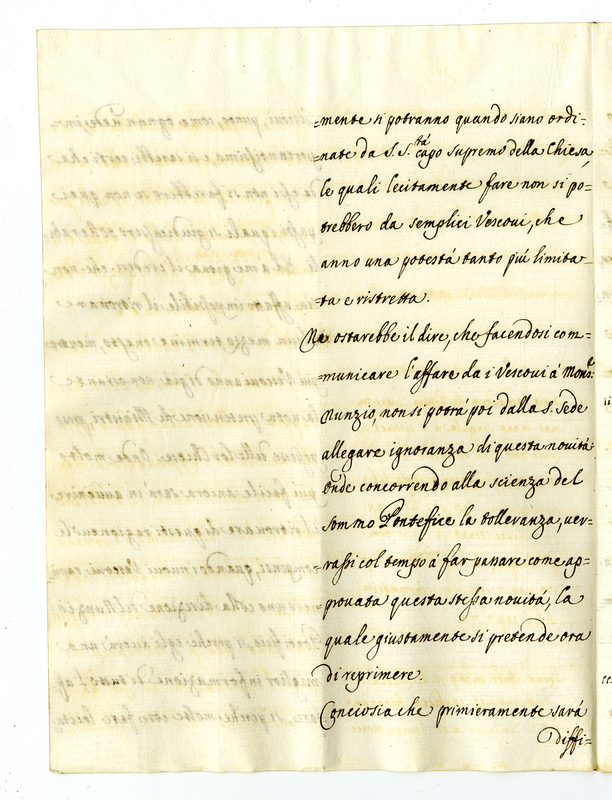 =mente si potranno quando siano ordi=
=nate da S. S.tà capo supremo della Chiesa,
le quali lecitamente fare non si po=
trebbero da semplici Vescovi, che
anno una potestà tanto più limita=
=ta e ristretta.
Ne ostarebbe il dire, che facendosi com=
=municare l'affare da i Vescovi à Mons.r
Nunzio, non si potrà poi dalla S. Sede
allegare ignoranza di questa novità:
Onde concorrendo alla scienza del
sommo Pontefice la tolleranza, ver=
=rassi col tempo à far passare come ap=
=provata questa stessa novità, la
quale giustamente si pretende ora
di reprimere.
Conciosia che primieramente sarà
Diffi=